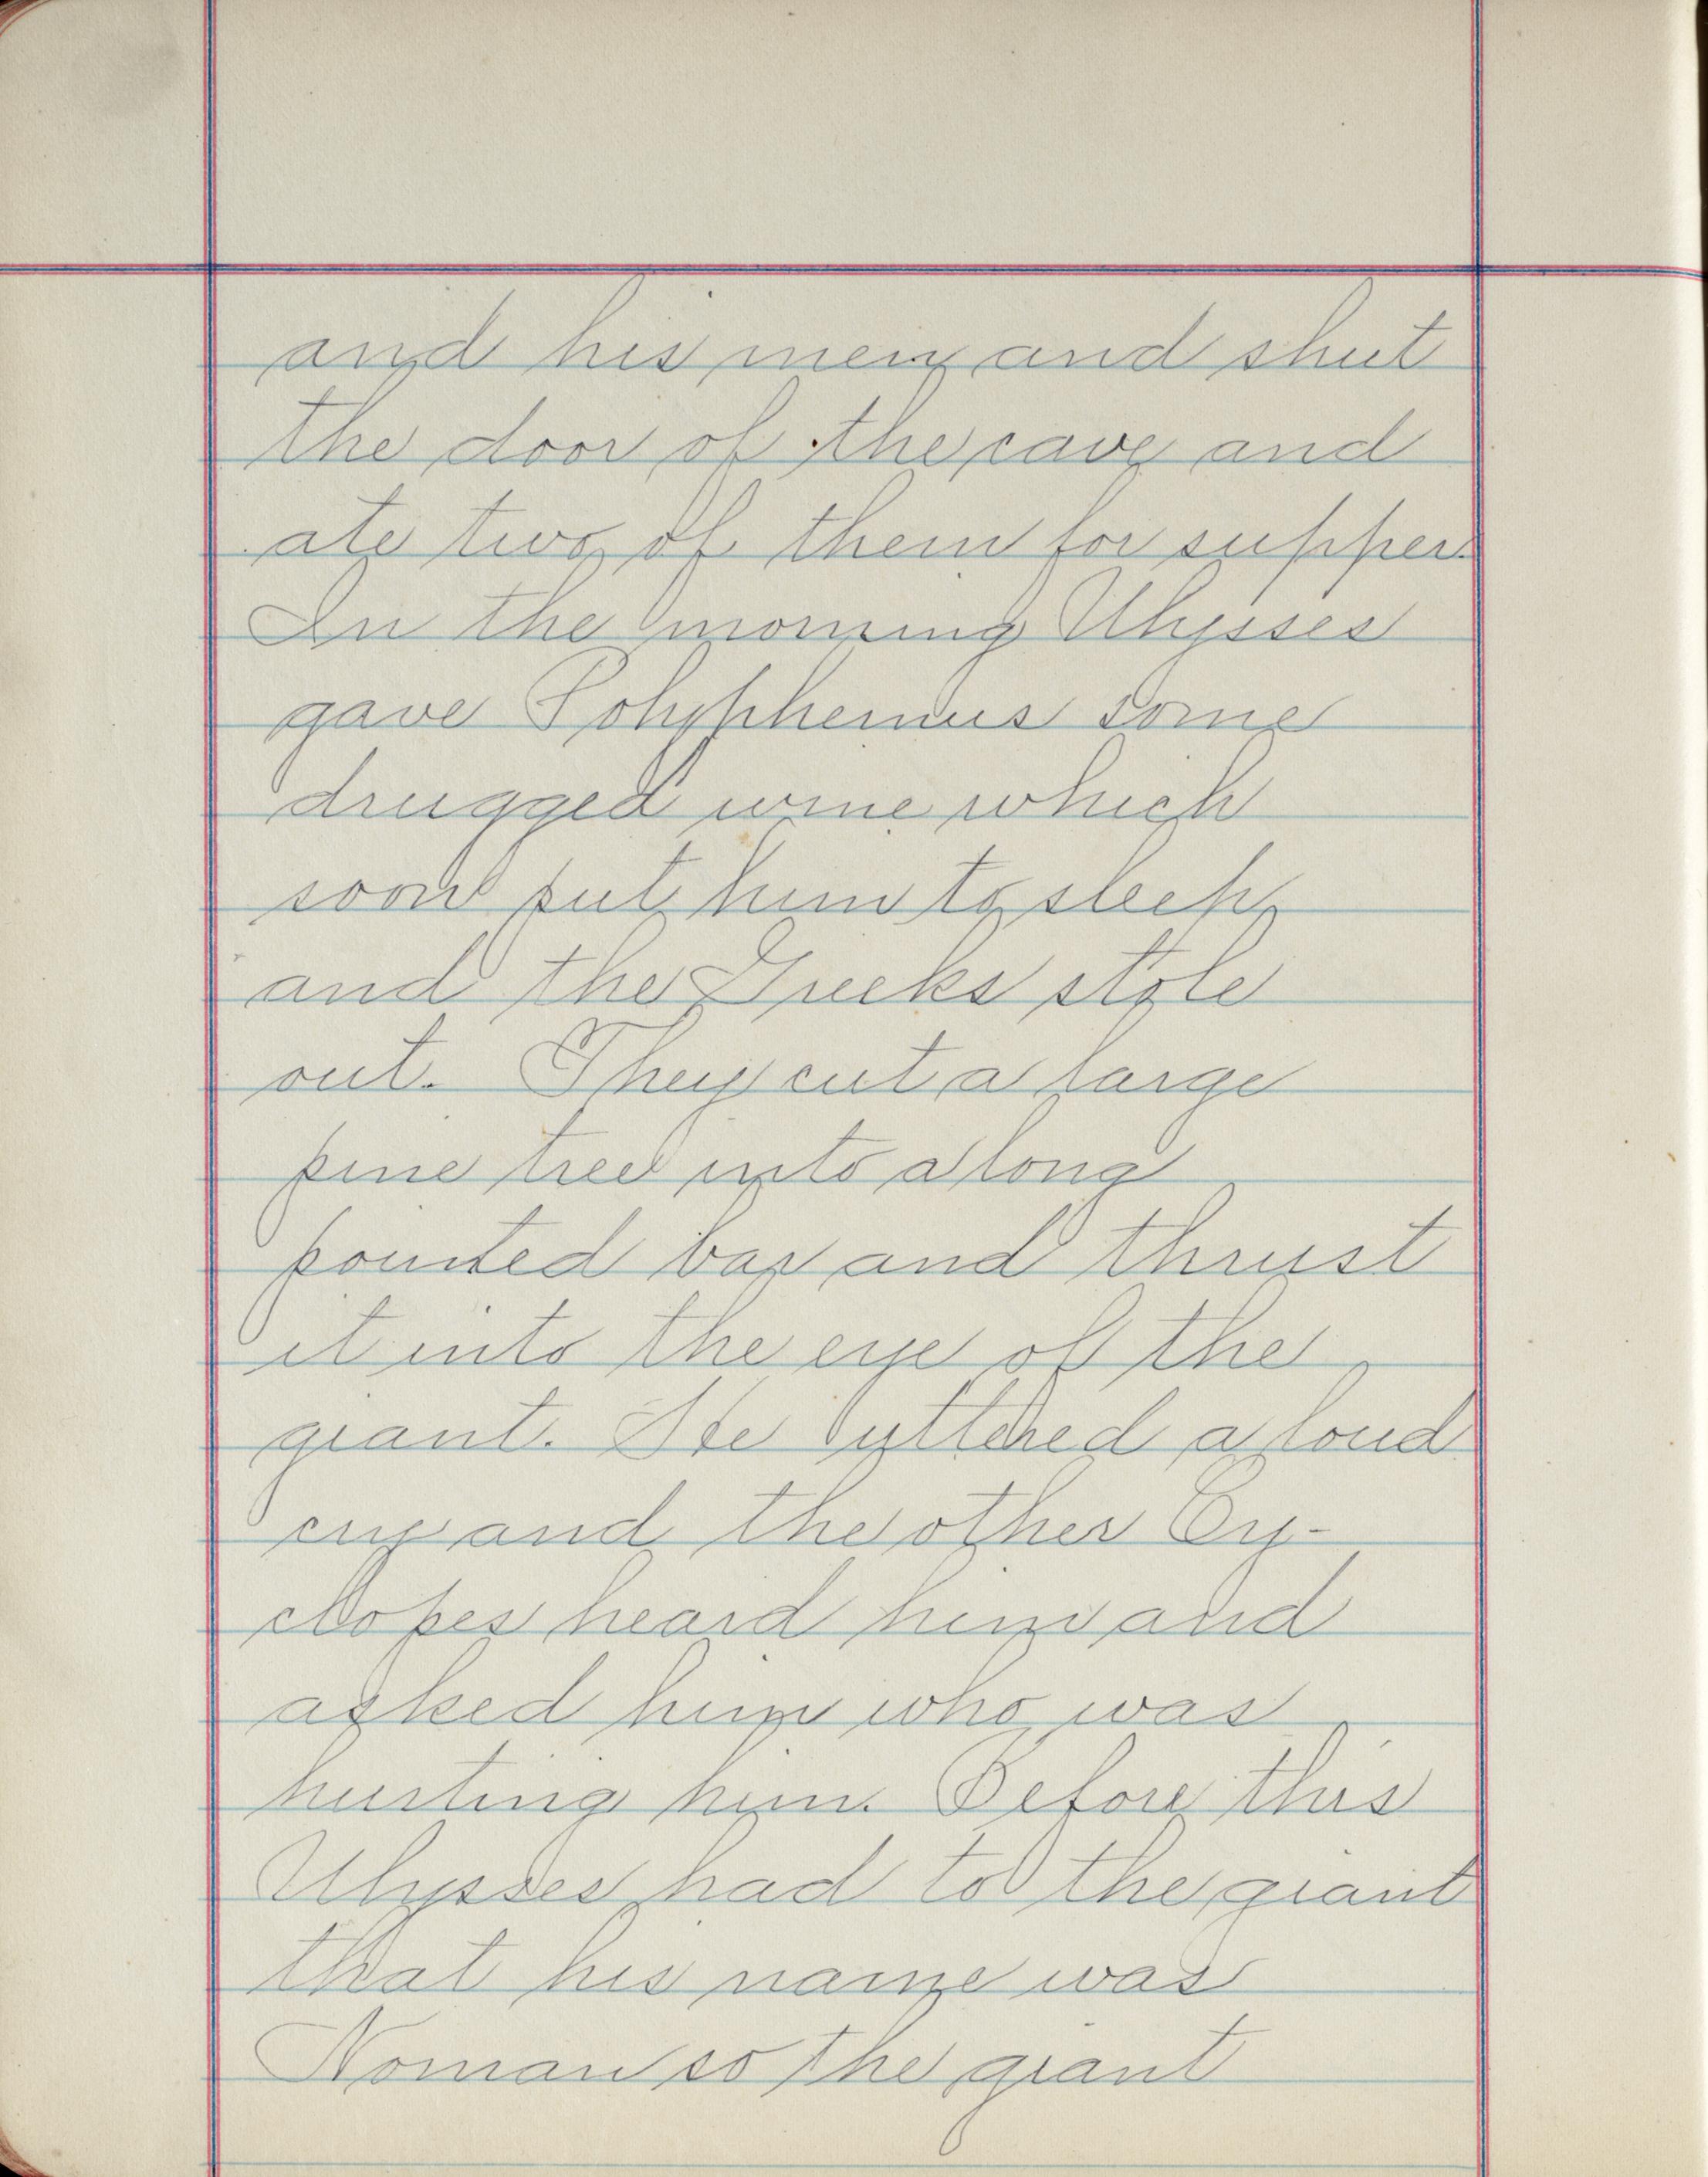 and his men and shut
the door of the cave and
ate two of them for supper.
In the morning Ulysses
gave Polyphemus some
drugged wine which
soon put him to sleep
and the Greeks stole
out. They cut a large
pine tree into a long
pointed bar and thrust
it into the eye of the
giant. He uttered a loud
cry and the other Cy-
clopes heard him and
asked him who was
hurting him. Before this
Ulysses had tol the giant
that his name was
Noman so the giant